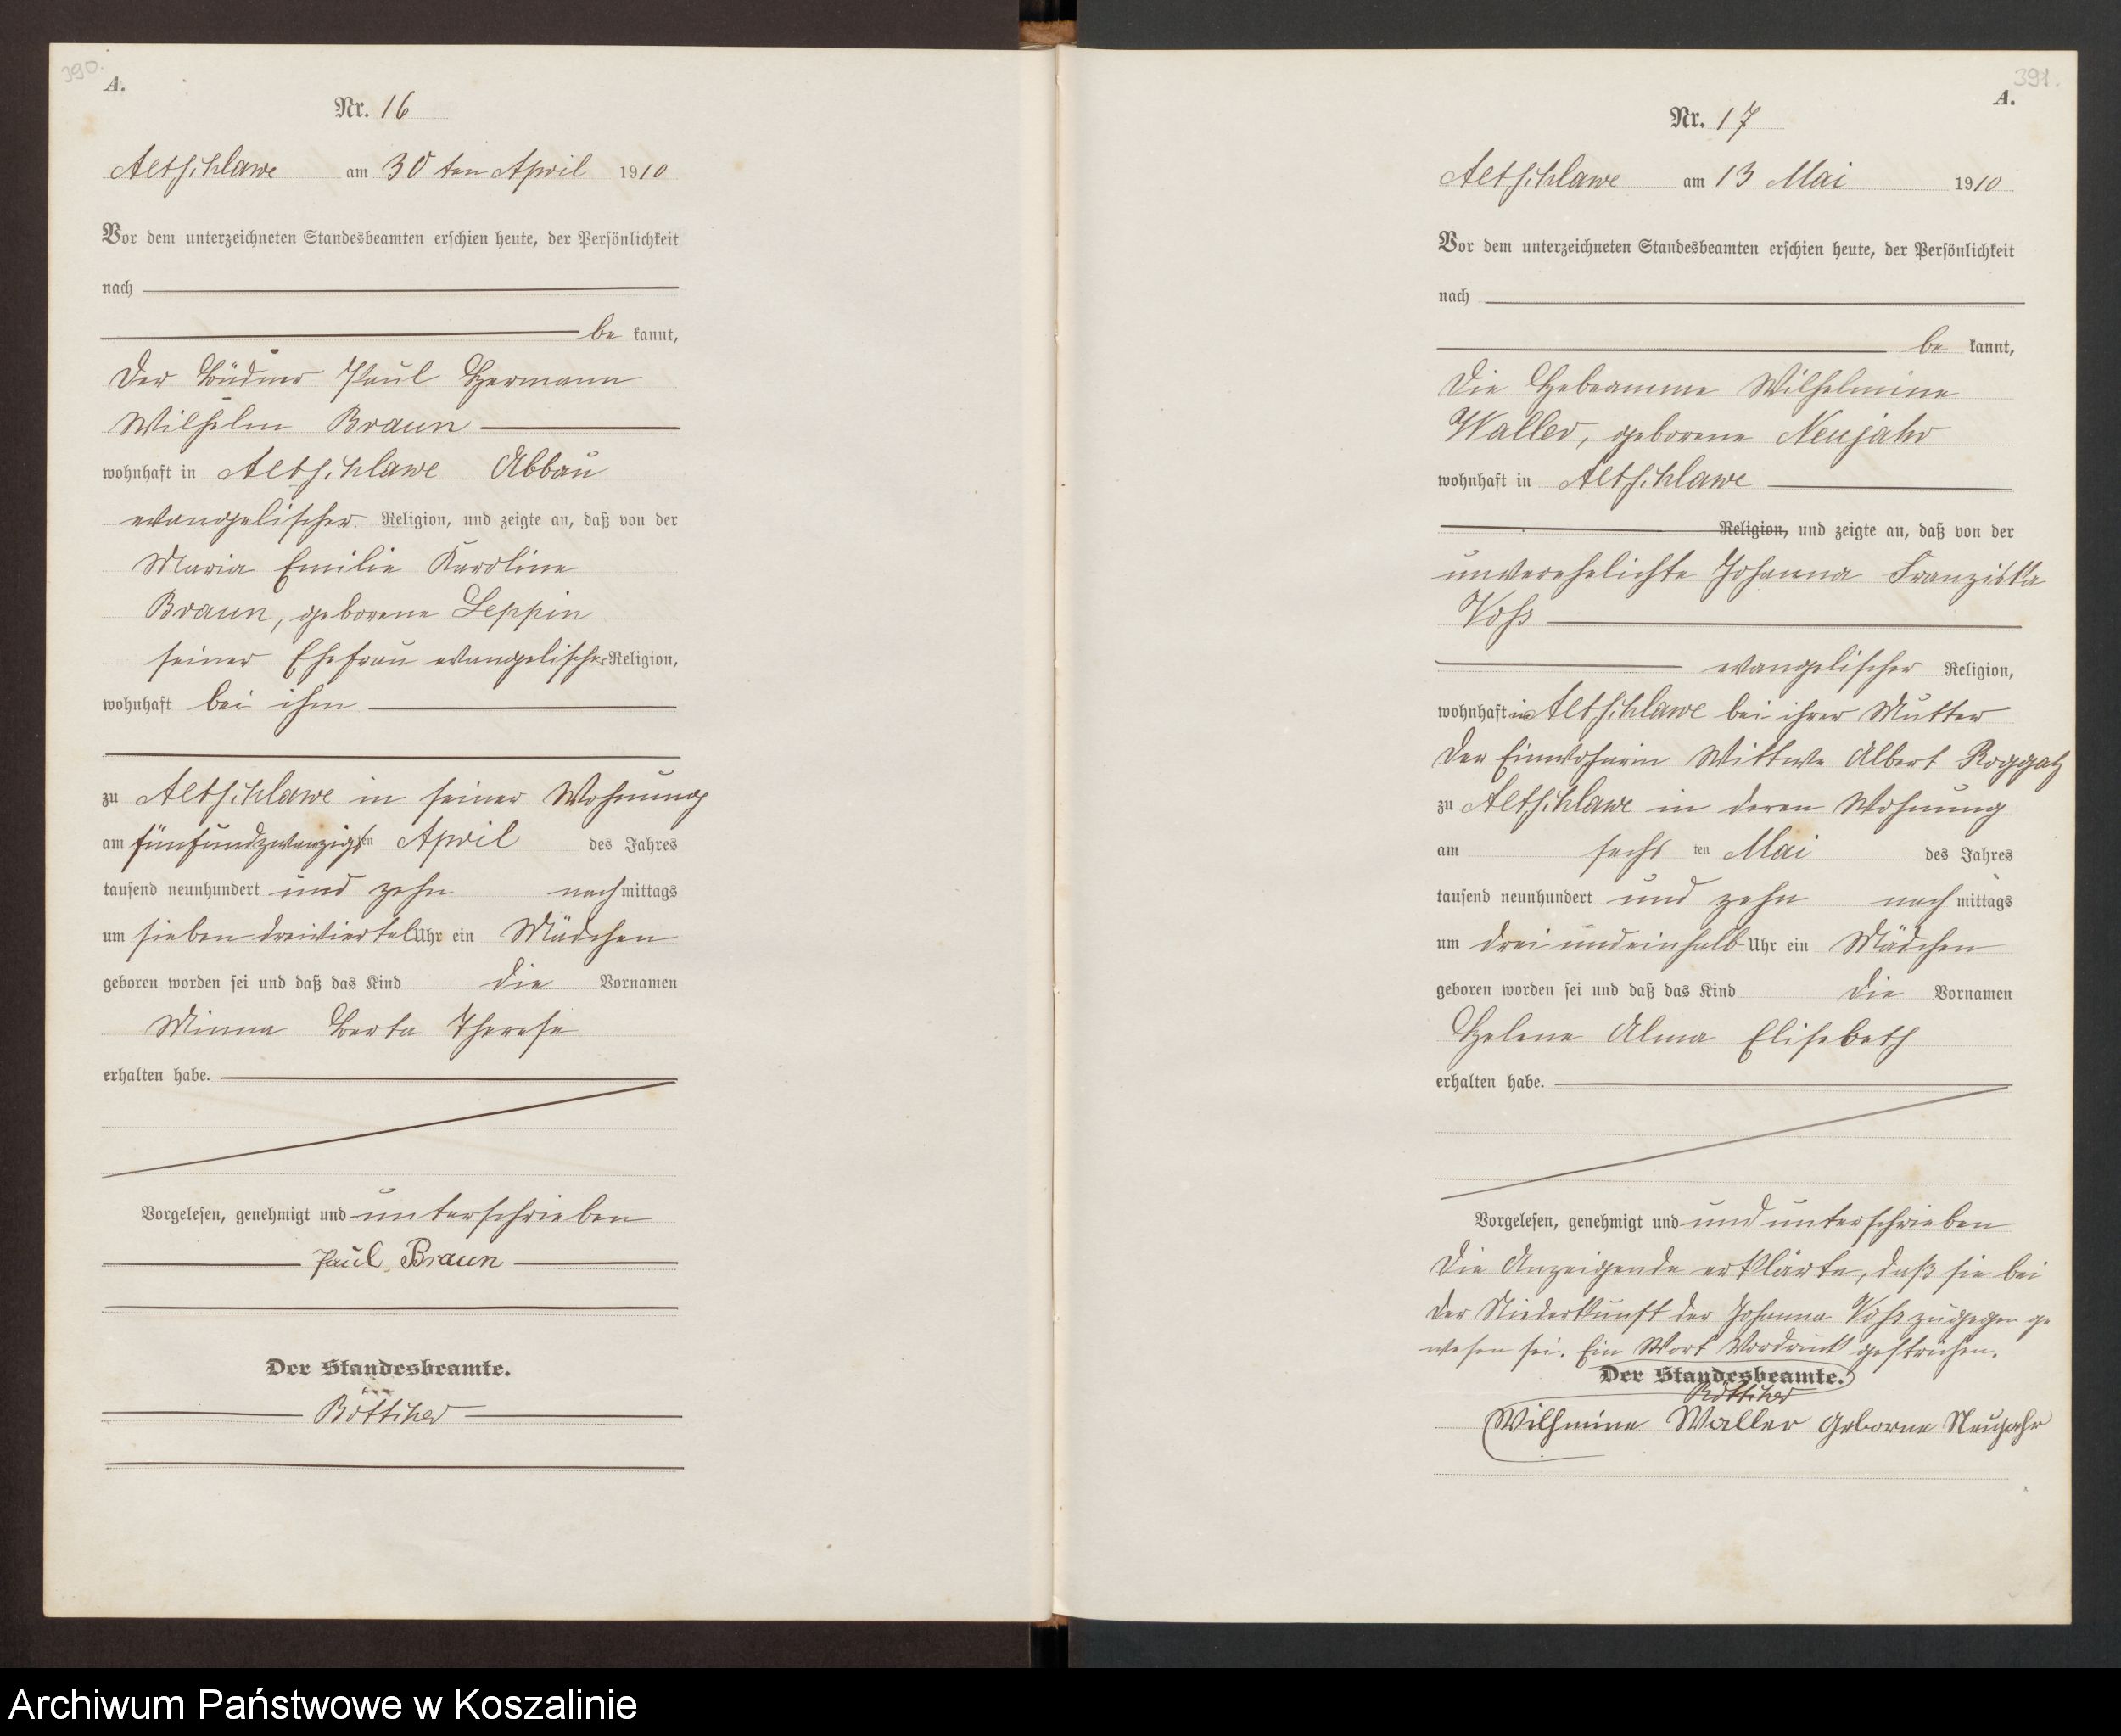 390.
A.
Nr. 16
Altschlawe am 30 ten April 1910
Vor dem unterzeichneten Standesbeamten erschien heute, der Persönlichkeit
nach
be kannt,
der Büdner Paul Hermann
Wilhelm Braun
wohnhaft in Altschlawe Abbau
evangelischer Religion, und zeigte an, daß von der
Maria Emilie Karoline
Braun, geborene Leppin
seiner Ehefrau evangelischer Religion,
wohnhaft bei ihm
zu Altschlawe in seiner Wohnung
am fünfundzwanzigsten April des Jahres
tausend neunhundert und zehn nach mittags
um sieben dreiviertel Uhr ein Mädchen
geboren worden sei und daß das Kind die Vornamen
Minna Berta Therese
erhalten habe.
Vorgelesen, genehmigt und unterschrieben
Paul Braun
Der Standesbeamte.
Böttcher
391.
A.
Nr. 17
Altschlawe am 13 Mai 1910
Vor dem unterzeichneten Standesbeamten erschien heute, der Persönlichkeit
nach
be kannt,
die Hebeamme Wilhelmine
Waller, geborene Neujahr
wohnhaft in Altschlawe
Religion, und zeigte an, daß von der
unverehelichte Johanna Franziska
Voß
evangelischer Religion,
wohnhaft in Altschlawe bei ihrer Mutter
der Einwohnerin Wittwe Albert Roggatz
zu Altschlawe in deren Wohnung
am sechs ten Mai des Jahres
tausend neunhundert und zehn nach mittags
um drei undeinhalb Uhr ein Mädchen
geboren worden sei und daß das Kind die Vornamen
Helene Alma Elisebeth
erhalten habe.
Vorgelesen, genehmigt und und unterschrieben
Die Anzeigende erklärte, daß sie bei
der Niederkunft der Johanna Voß zugegen ge
wesen sei. Ein Wort Vordruck gestrichen.
Der Standesbeamte.
Böttcher
Wilhmine Waller geborne Neujahr
Archiwum Państwowe w Koszalinie